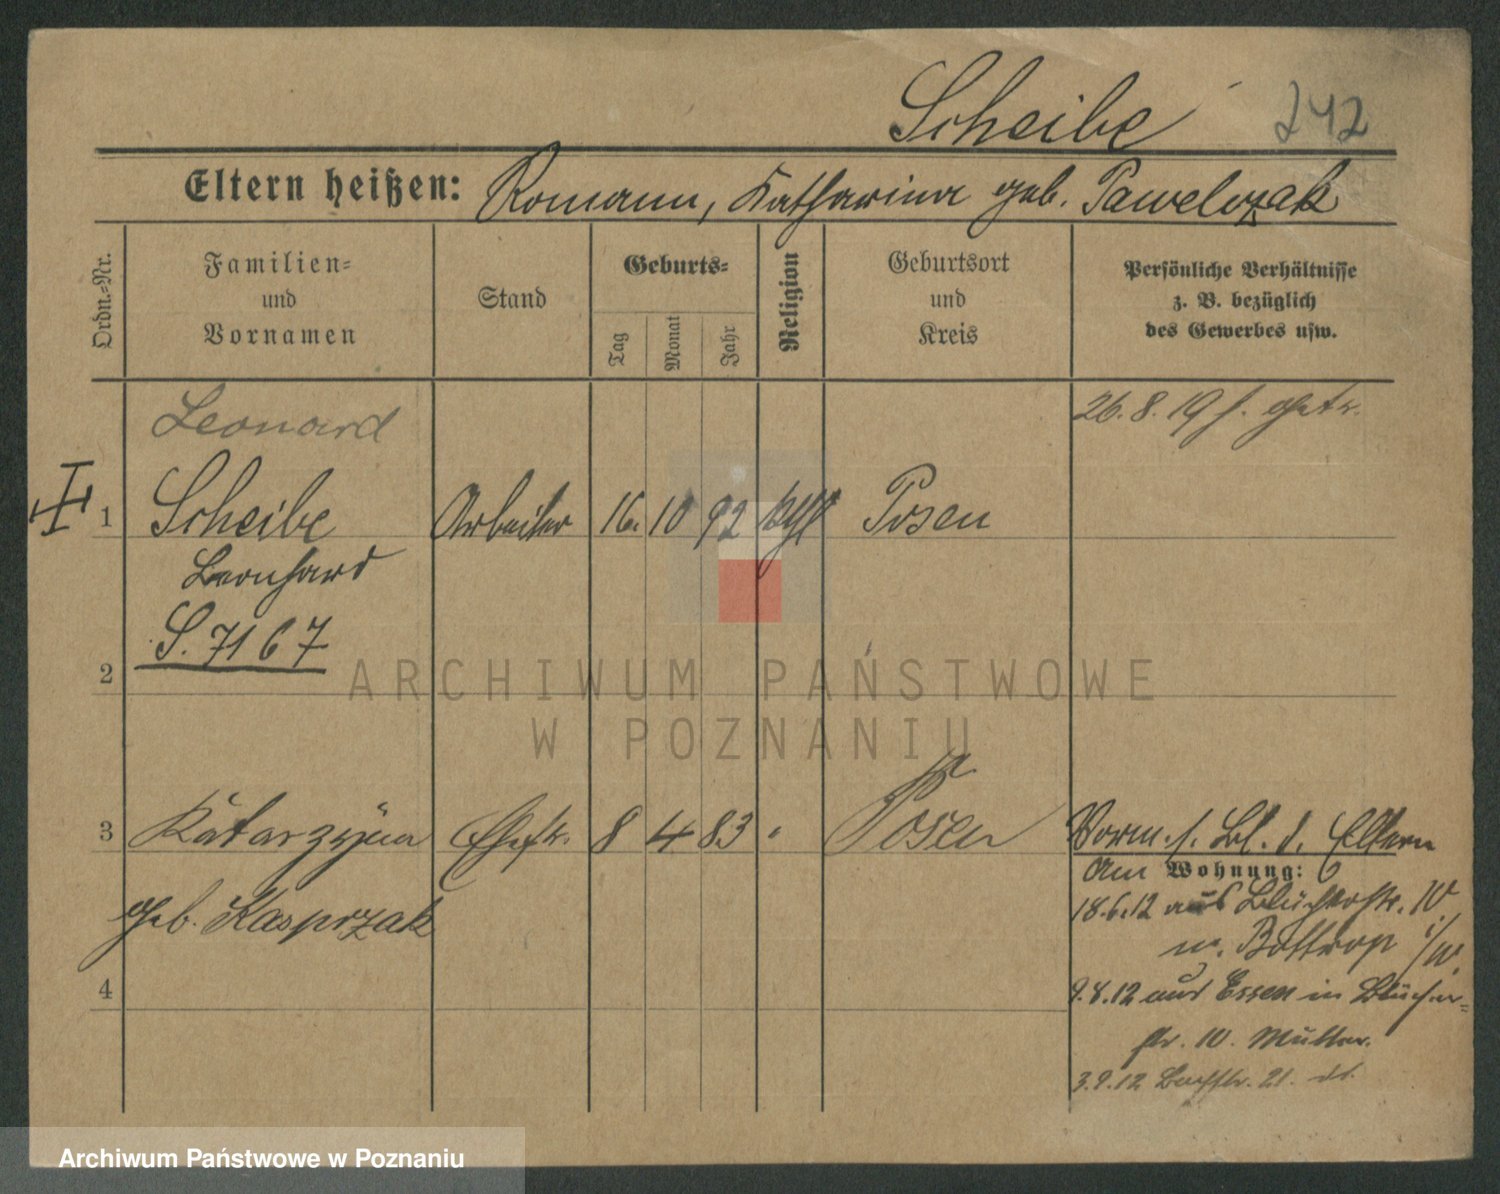 Scheibe
242
Eltern heißen: Romann, Katharina geb. Pawelczak
Ordn.-Nr.
Familien-
und
Vornamen
Stand
Geburts-
Tag
Monat
Jahr
Religion
Geburtsort
und
Kreis
Persönliche Verhältnisse
z. B. bezüglich
des Gewerbes usw.
Leonard
26.8.19 f. getr.
1 Scheibe Arbeiter 16. 10 92 kath Posen
Leonhard
S. 7167
2
3 Katarzyna Ehefr. 8 4 83 " Posen
Vorm. s. Bl. d. Eltern
Am Wohnung:
geb. Kasprzak
18.6.12 aus Blücherstr. 10
n. Bottrop i/W.
4
9.8.12 aus Essen in Blücher-
str. 10. Mutter.
3.9.12 21.
ARCHIWUM PAŃSTWOWE
W POZNANIU
Archiwum Państwowe w Poznaniu